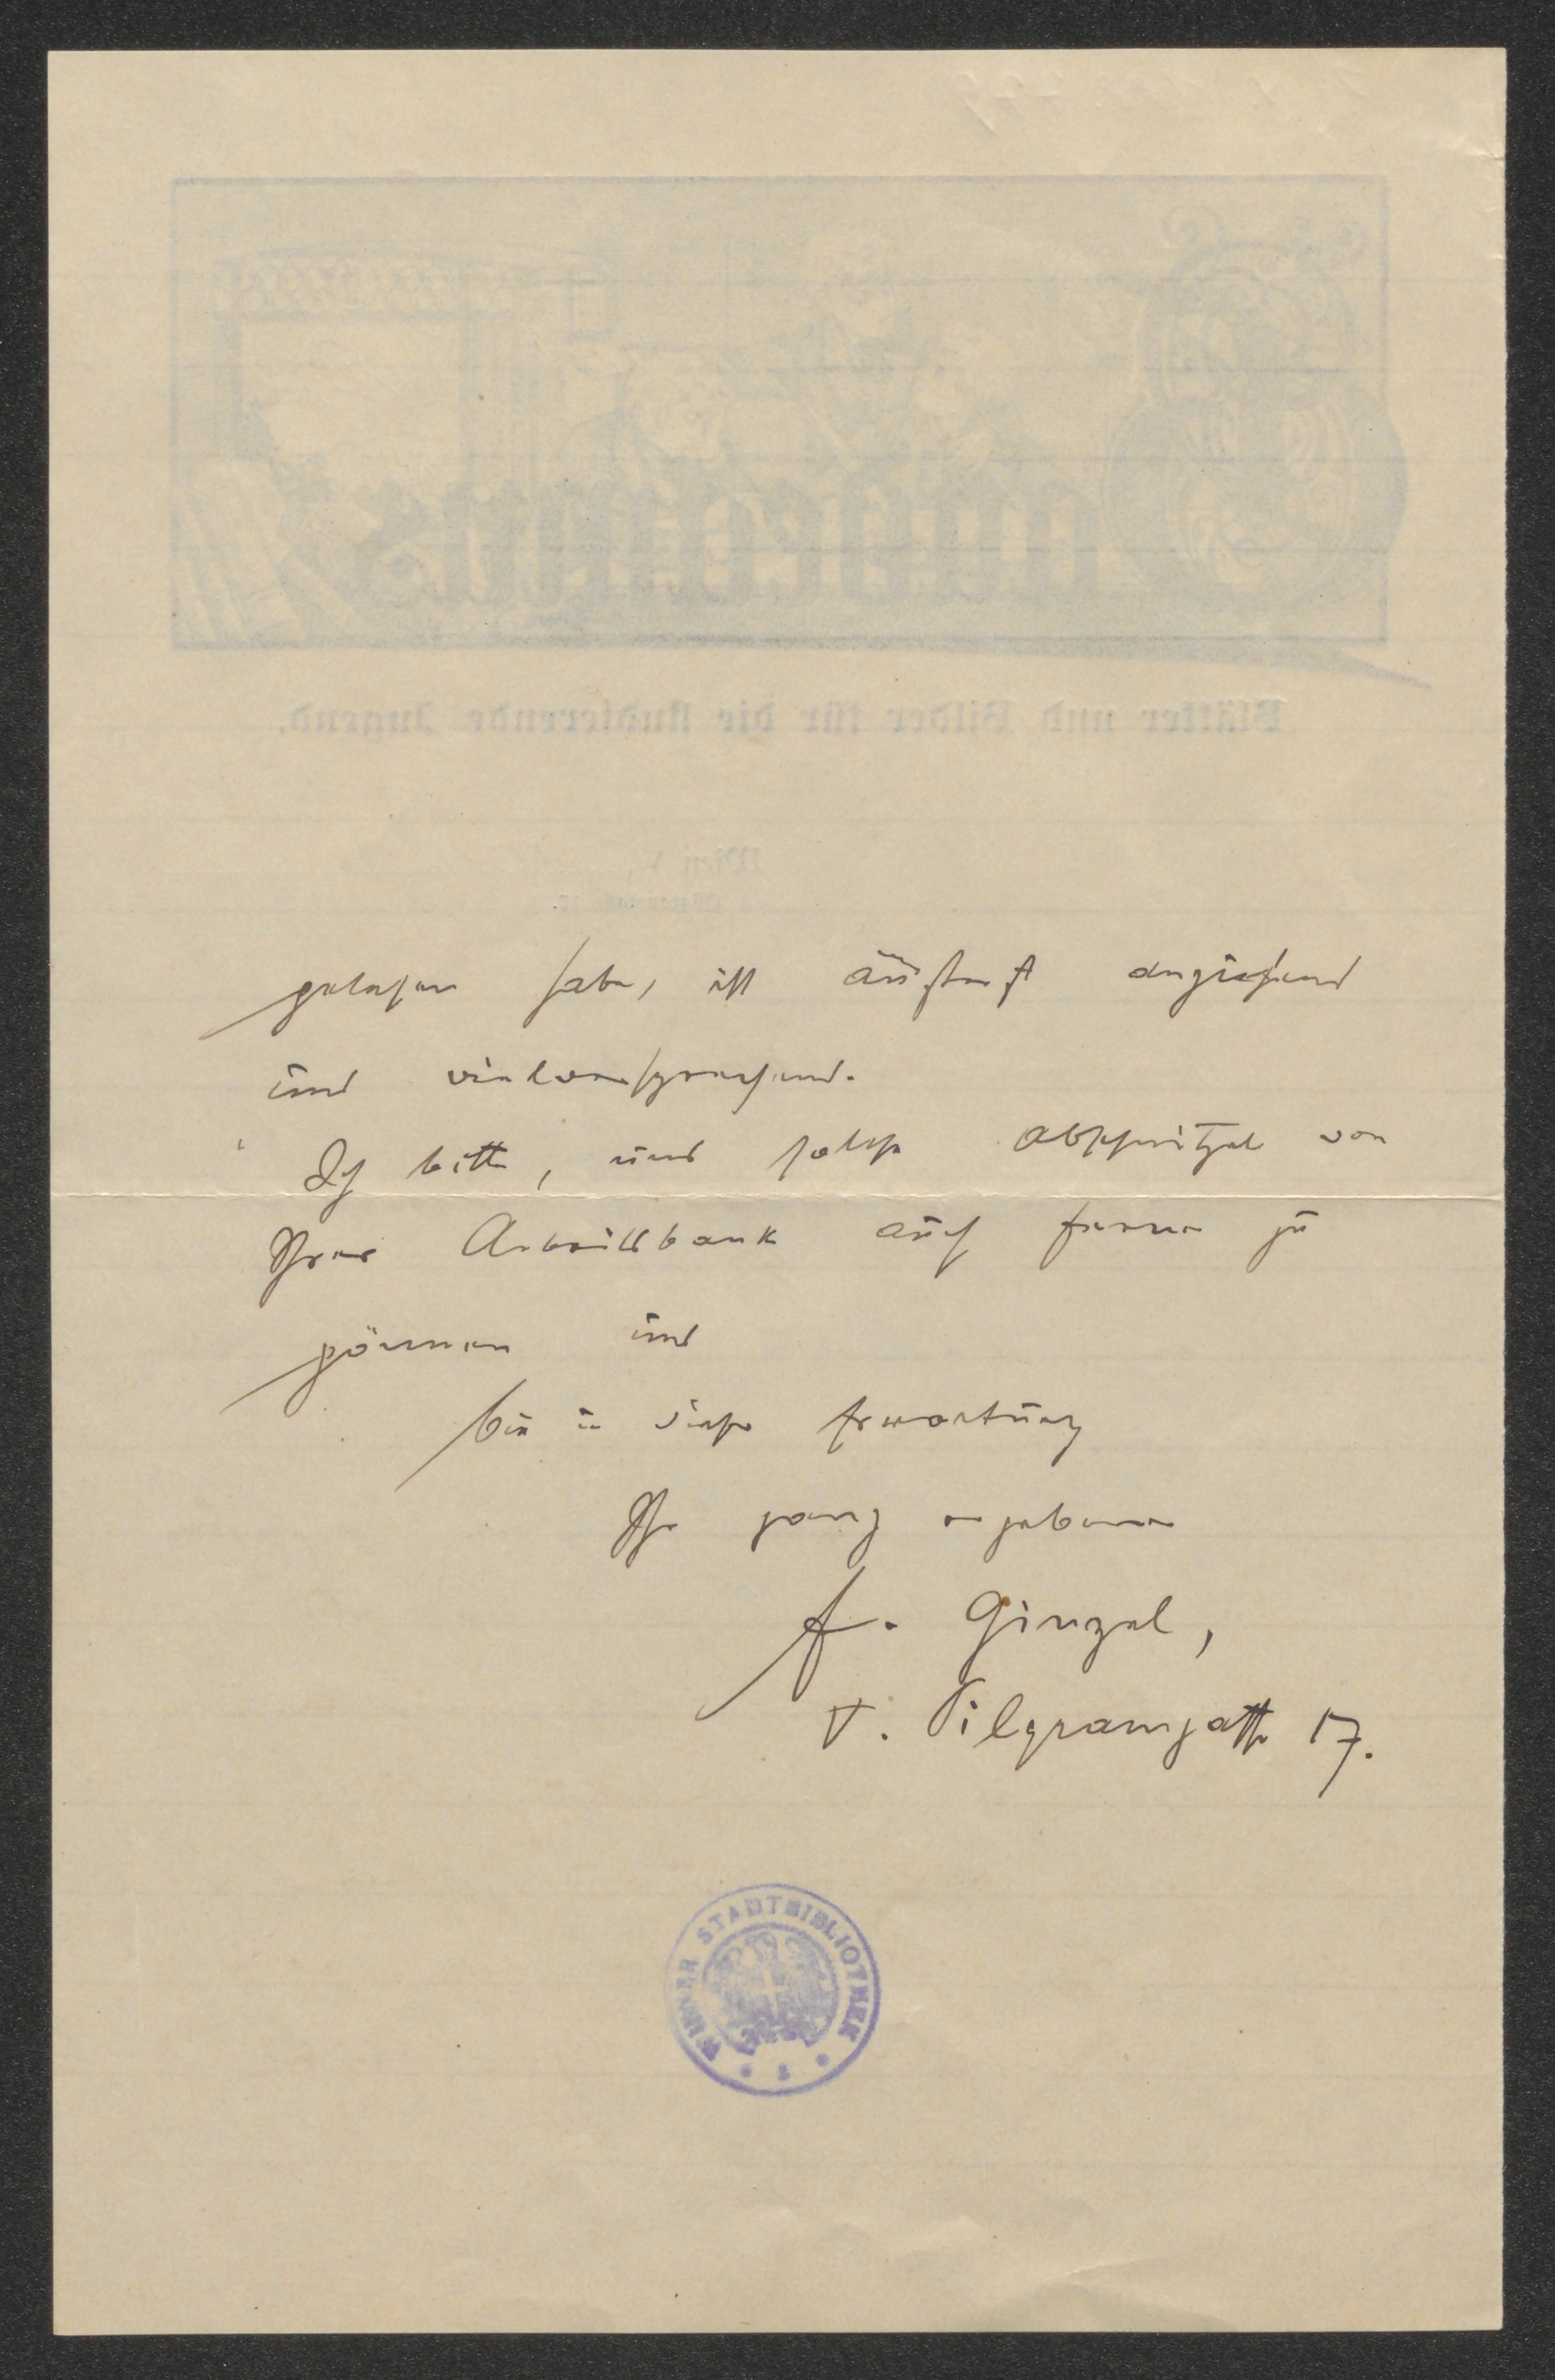 Gaudeamus
Blätter und Bilder für die studierende Jugend.
Wien V,
gelesen habe, ist äußerst anziehend
und vielversprechend.
Ich bitte, uns solche Abschnitzel von
Ihrer Arbeitsbank auch ferner zu
gönnen und
bin in dieser Erwartung
Ihr ganz ergebener
F. Ginzel,
V. Pilgramgasse 17.
WIENER STADTBIBLIOTHEK